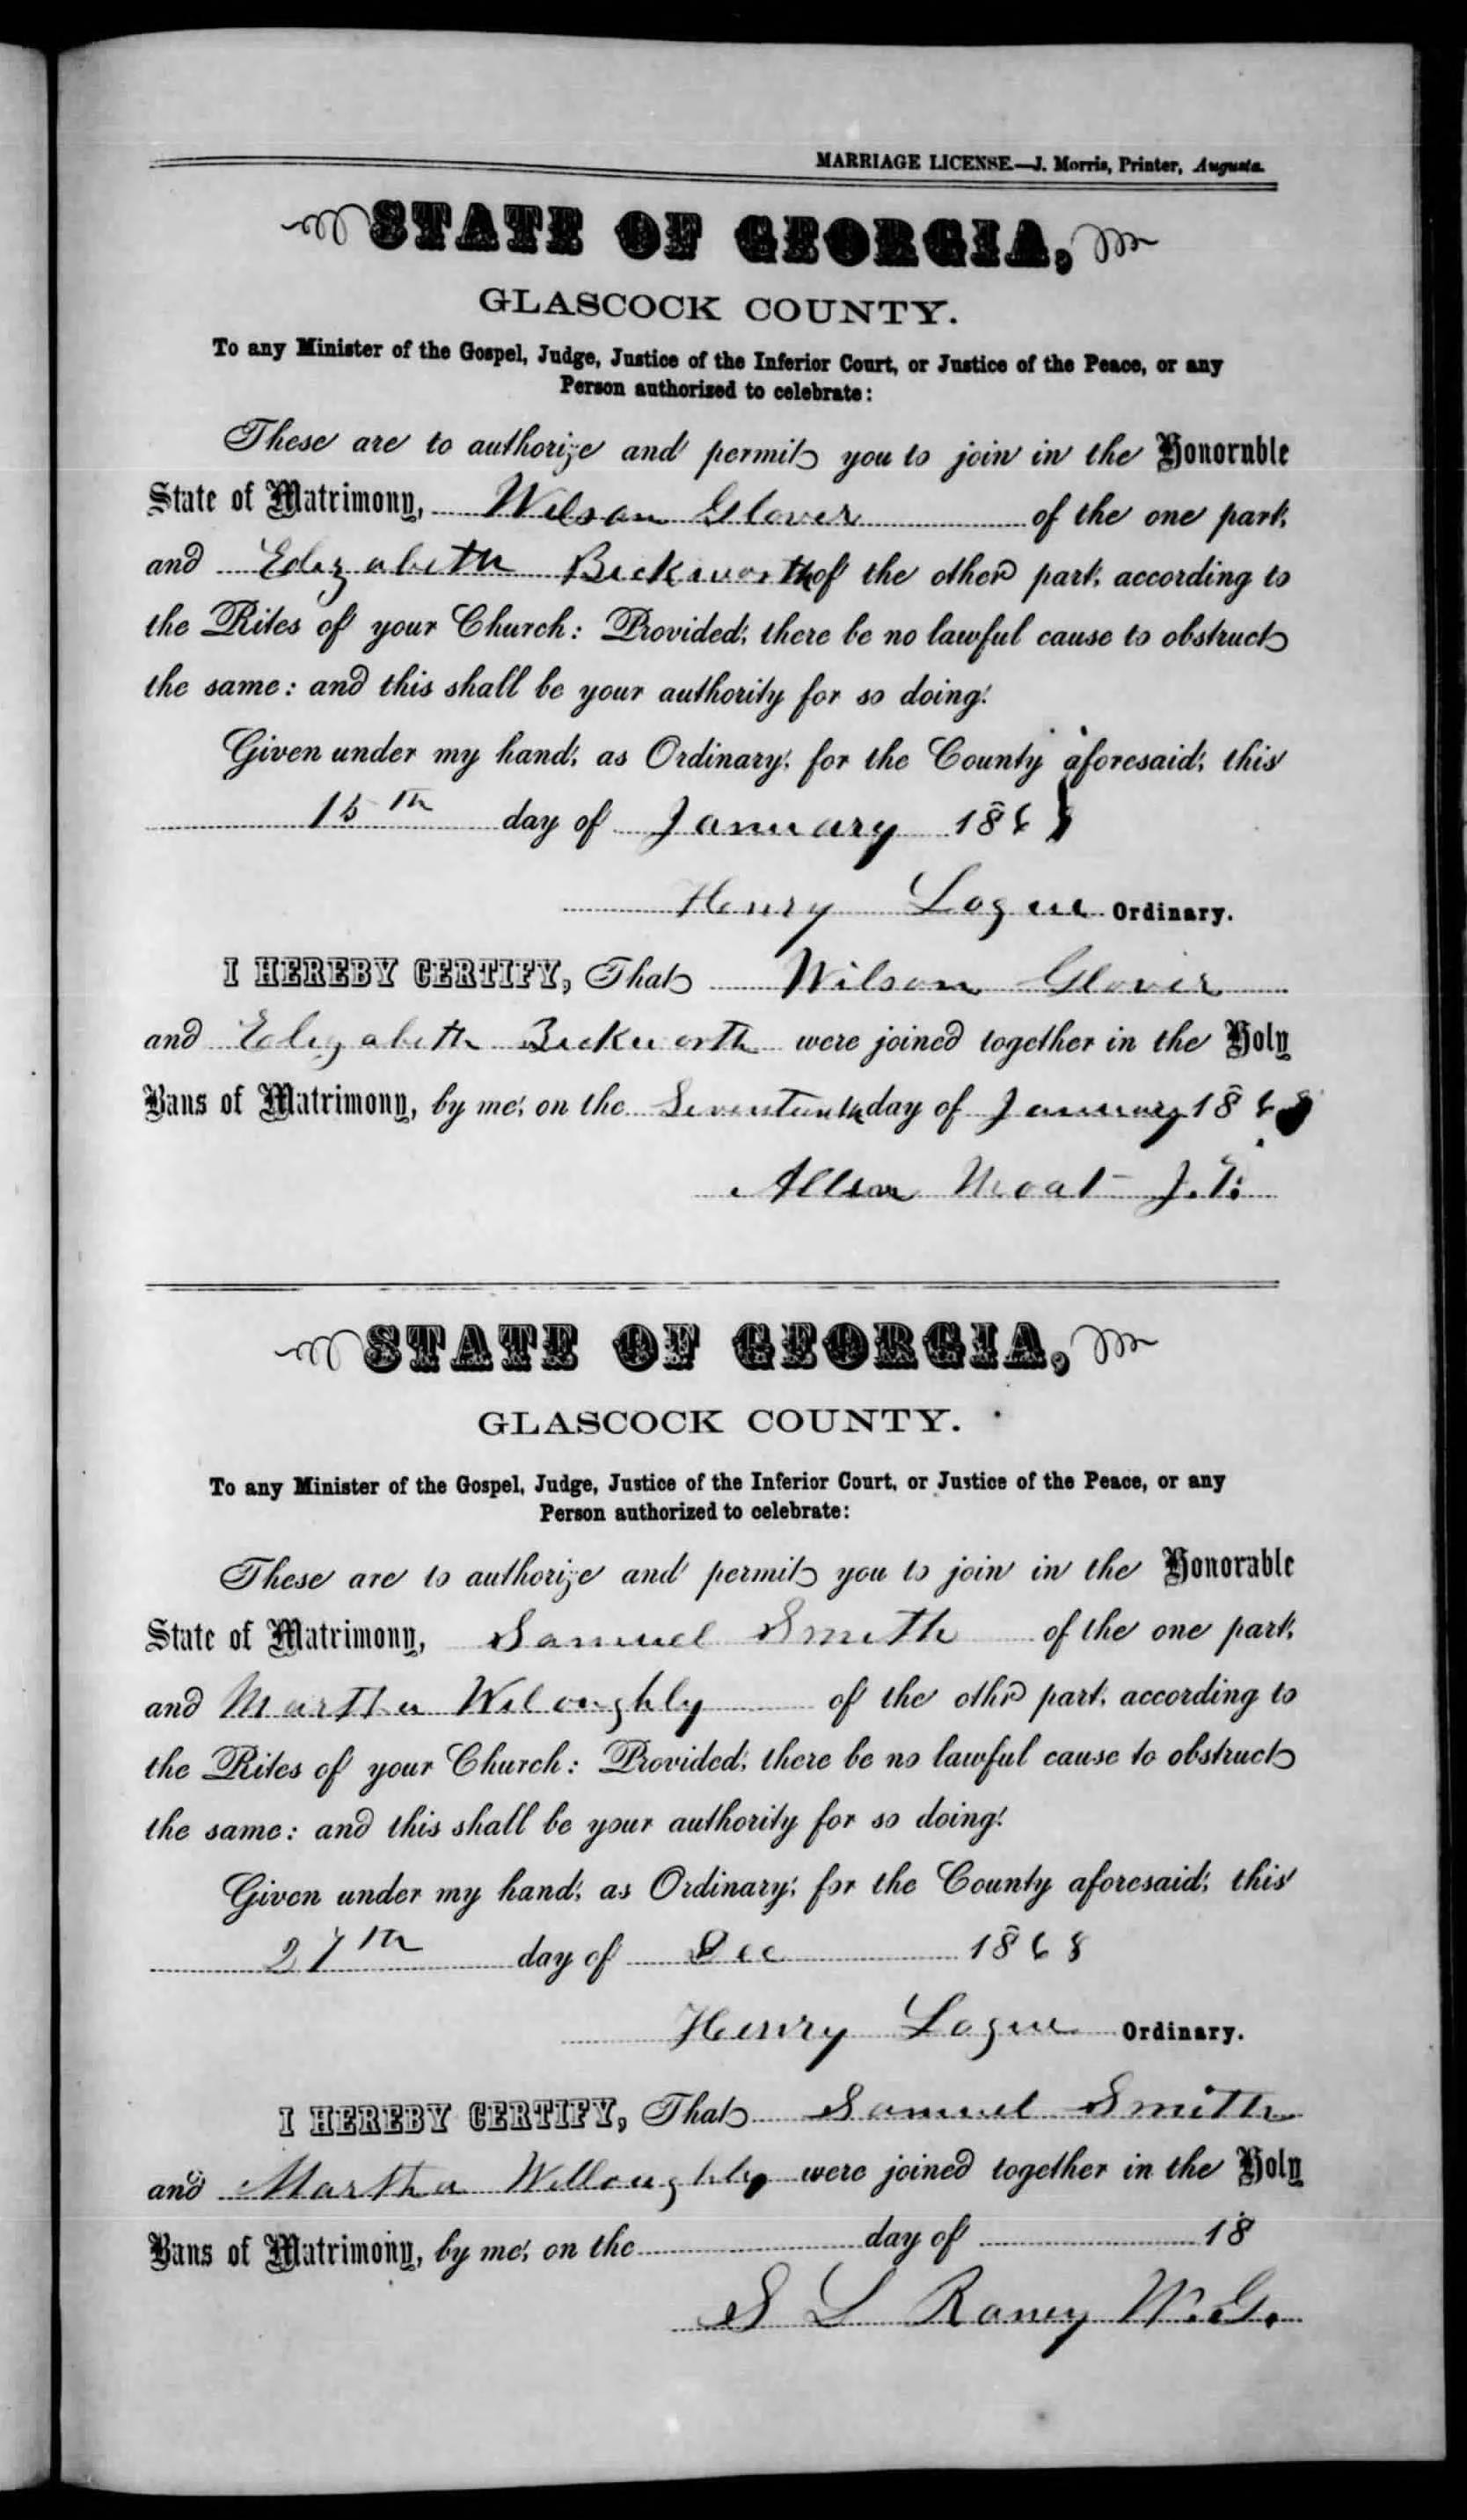 MARRIAGE LICENSE.—J. Morris, Printer, Augusta.
STATE OF GEORGIA,
GLASCOCK COUNTY.
To any Minister of the Gospel, Judge, Justice of the Inferior Court, or Justice of the Peace, or any
Person authorized to celebrate:
These are to authorize and permit you to join in the Honornble
State of Matrimony, Wilson Glover of the one part,
and Elizabeth Beckworth of the other part, according to
the Rites of your Church: Provided, there be no lawful cause to obstruct
the same: and this shall be your authority for so doing.
Given under my hand, as Ordinary, for the County aforesaid, this
15th day of January 1868
Henry Logue Ordinary.
I HEREBY CERTIFY, That Wilson Glover
and Elizabeth Beckworth were joined together in the Holy
Bans of Matrimony, by me, on the Seventeenth day of January 186
Allen Moat J.P.
STATE OF GEORGIA,
GLASCOCK COUNTY.
To any Minister of the Gospel, Judge, Justice of the Inferior Court, or Justice of the Peace, or any
Person authorized to celebrate:
These are to authorize and permit you to join in the Honorable
State of Matrimony, Samuel Smith of the one part,
and Martha Wiloughby of the othr part, according to
the Rites of your Church: Provided, there be no lawful cause to obstruct
the same: and this shall be your authority for so doing.
Given under my hand, as Ordinary, for the County aforesaid, this
27th day of Dec 1868
Henry Logue Ordinary.
I HEREBY CERTIFY, That Samuel Smith
and Martha Willoughby were joined together in the Holy
Bans of Matrimony, by me, on the day of 18
S L Raney M.G.